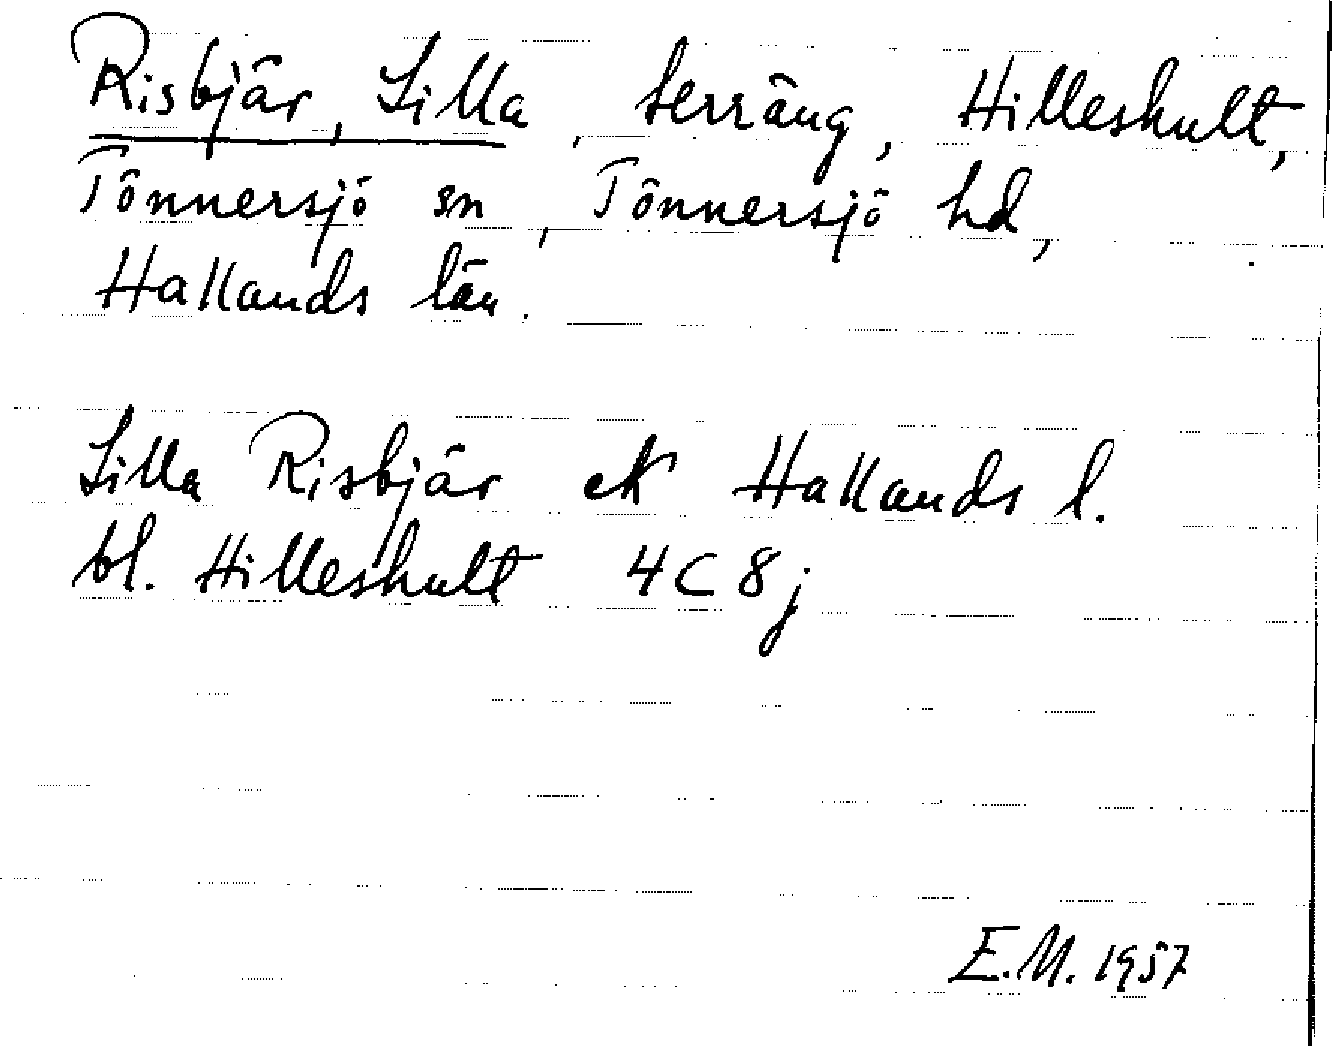 Risbjär, Lilla, terräng, Hilleshult,
Tönnersjö sn, Tönnersjö hd,
Hallands län.
Lilla Risbjär ek Hallands l.
bl. Hilleshult 4C8j
E.M. 1957